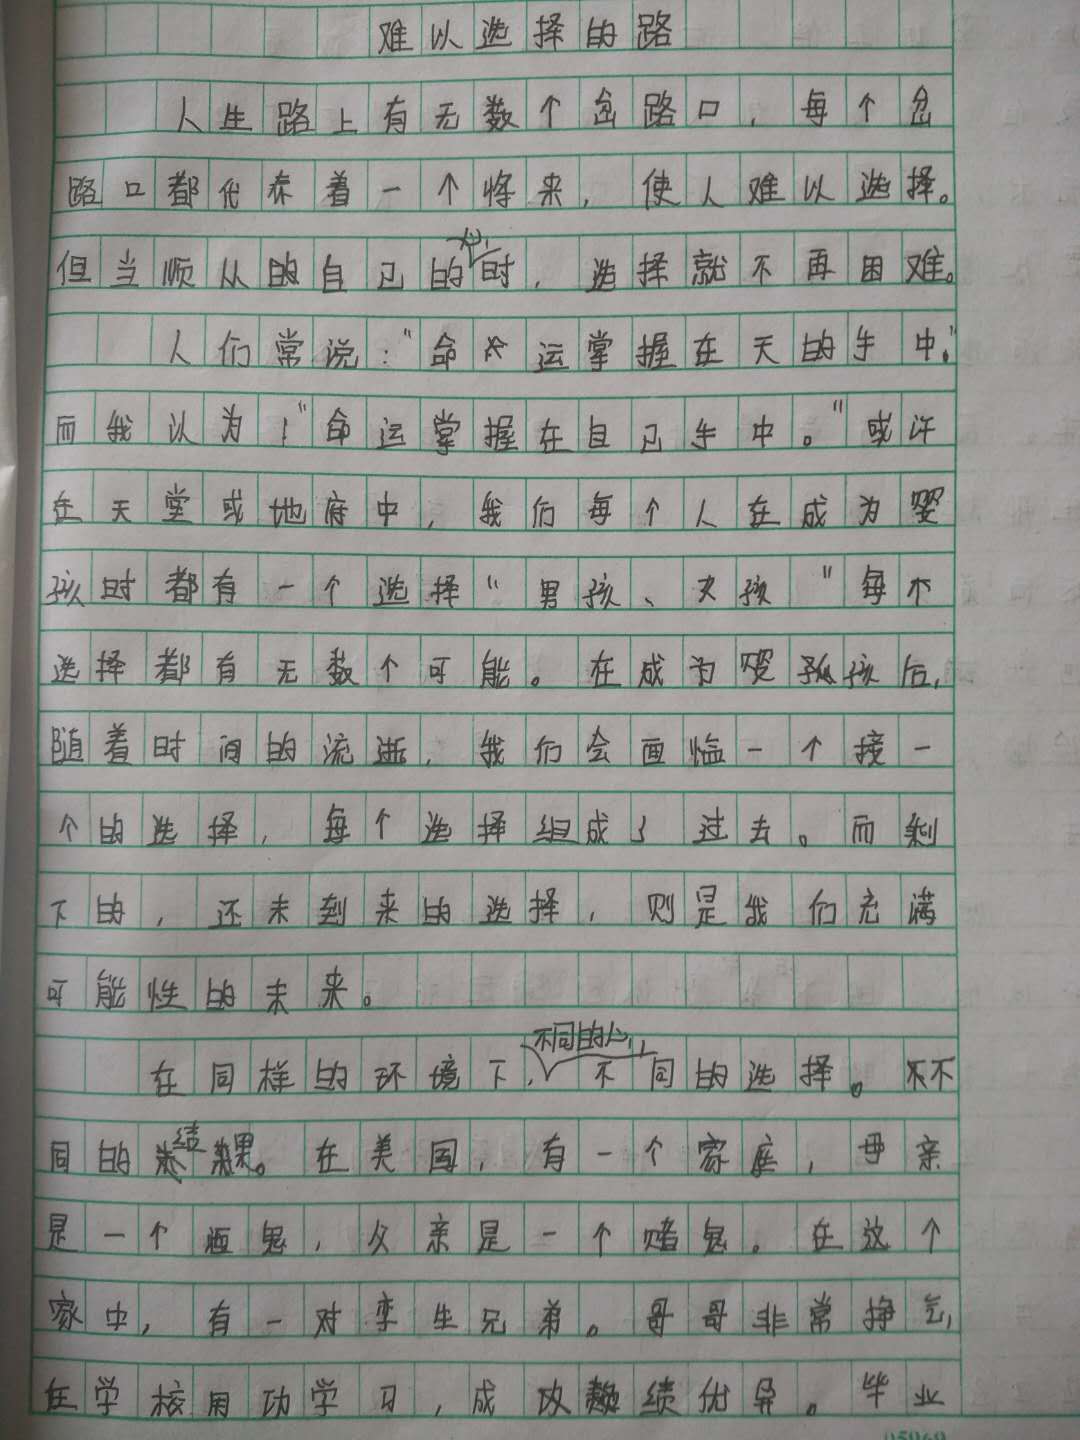 难以选择的路
人生路上有无数个岔路口，每个岔
路口都代表着一个将来，使人难以选择。
但当顺从的自己的心时，选择就不再困难。
人们常说："命运掌握在天的手中。"
而我认为："命运掌握在自己手中。"或许
在天堂或地府中，我们每个人在成为婴
孩时都有一个选择"男孩、女孩"每个
选择都有无数个可能。在成为婴孩后，
随着时间的流逝，我们会面临一个接一
个的选择，每个选择组成了过去。而剩
下的，还未到来的选择，则是我们充满
可能性的未来。
在同样的环境下，不同的人，不同的选择。不
同的结果。在美国，有一个家庭，母亲
是一个酒鬼，父亲是一个赌鬼。在这个
家中，有一对孪生兄弟。哥哥非常挣气，
在学校用功学习，成绩优异。毕业